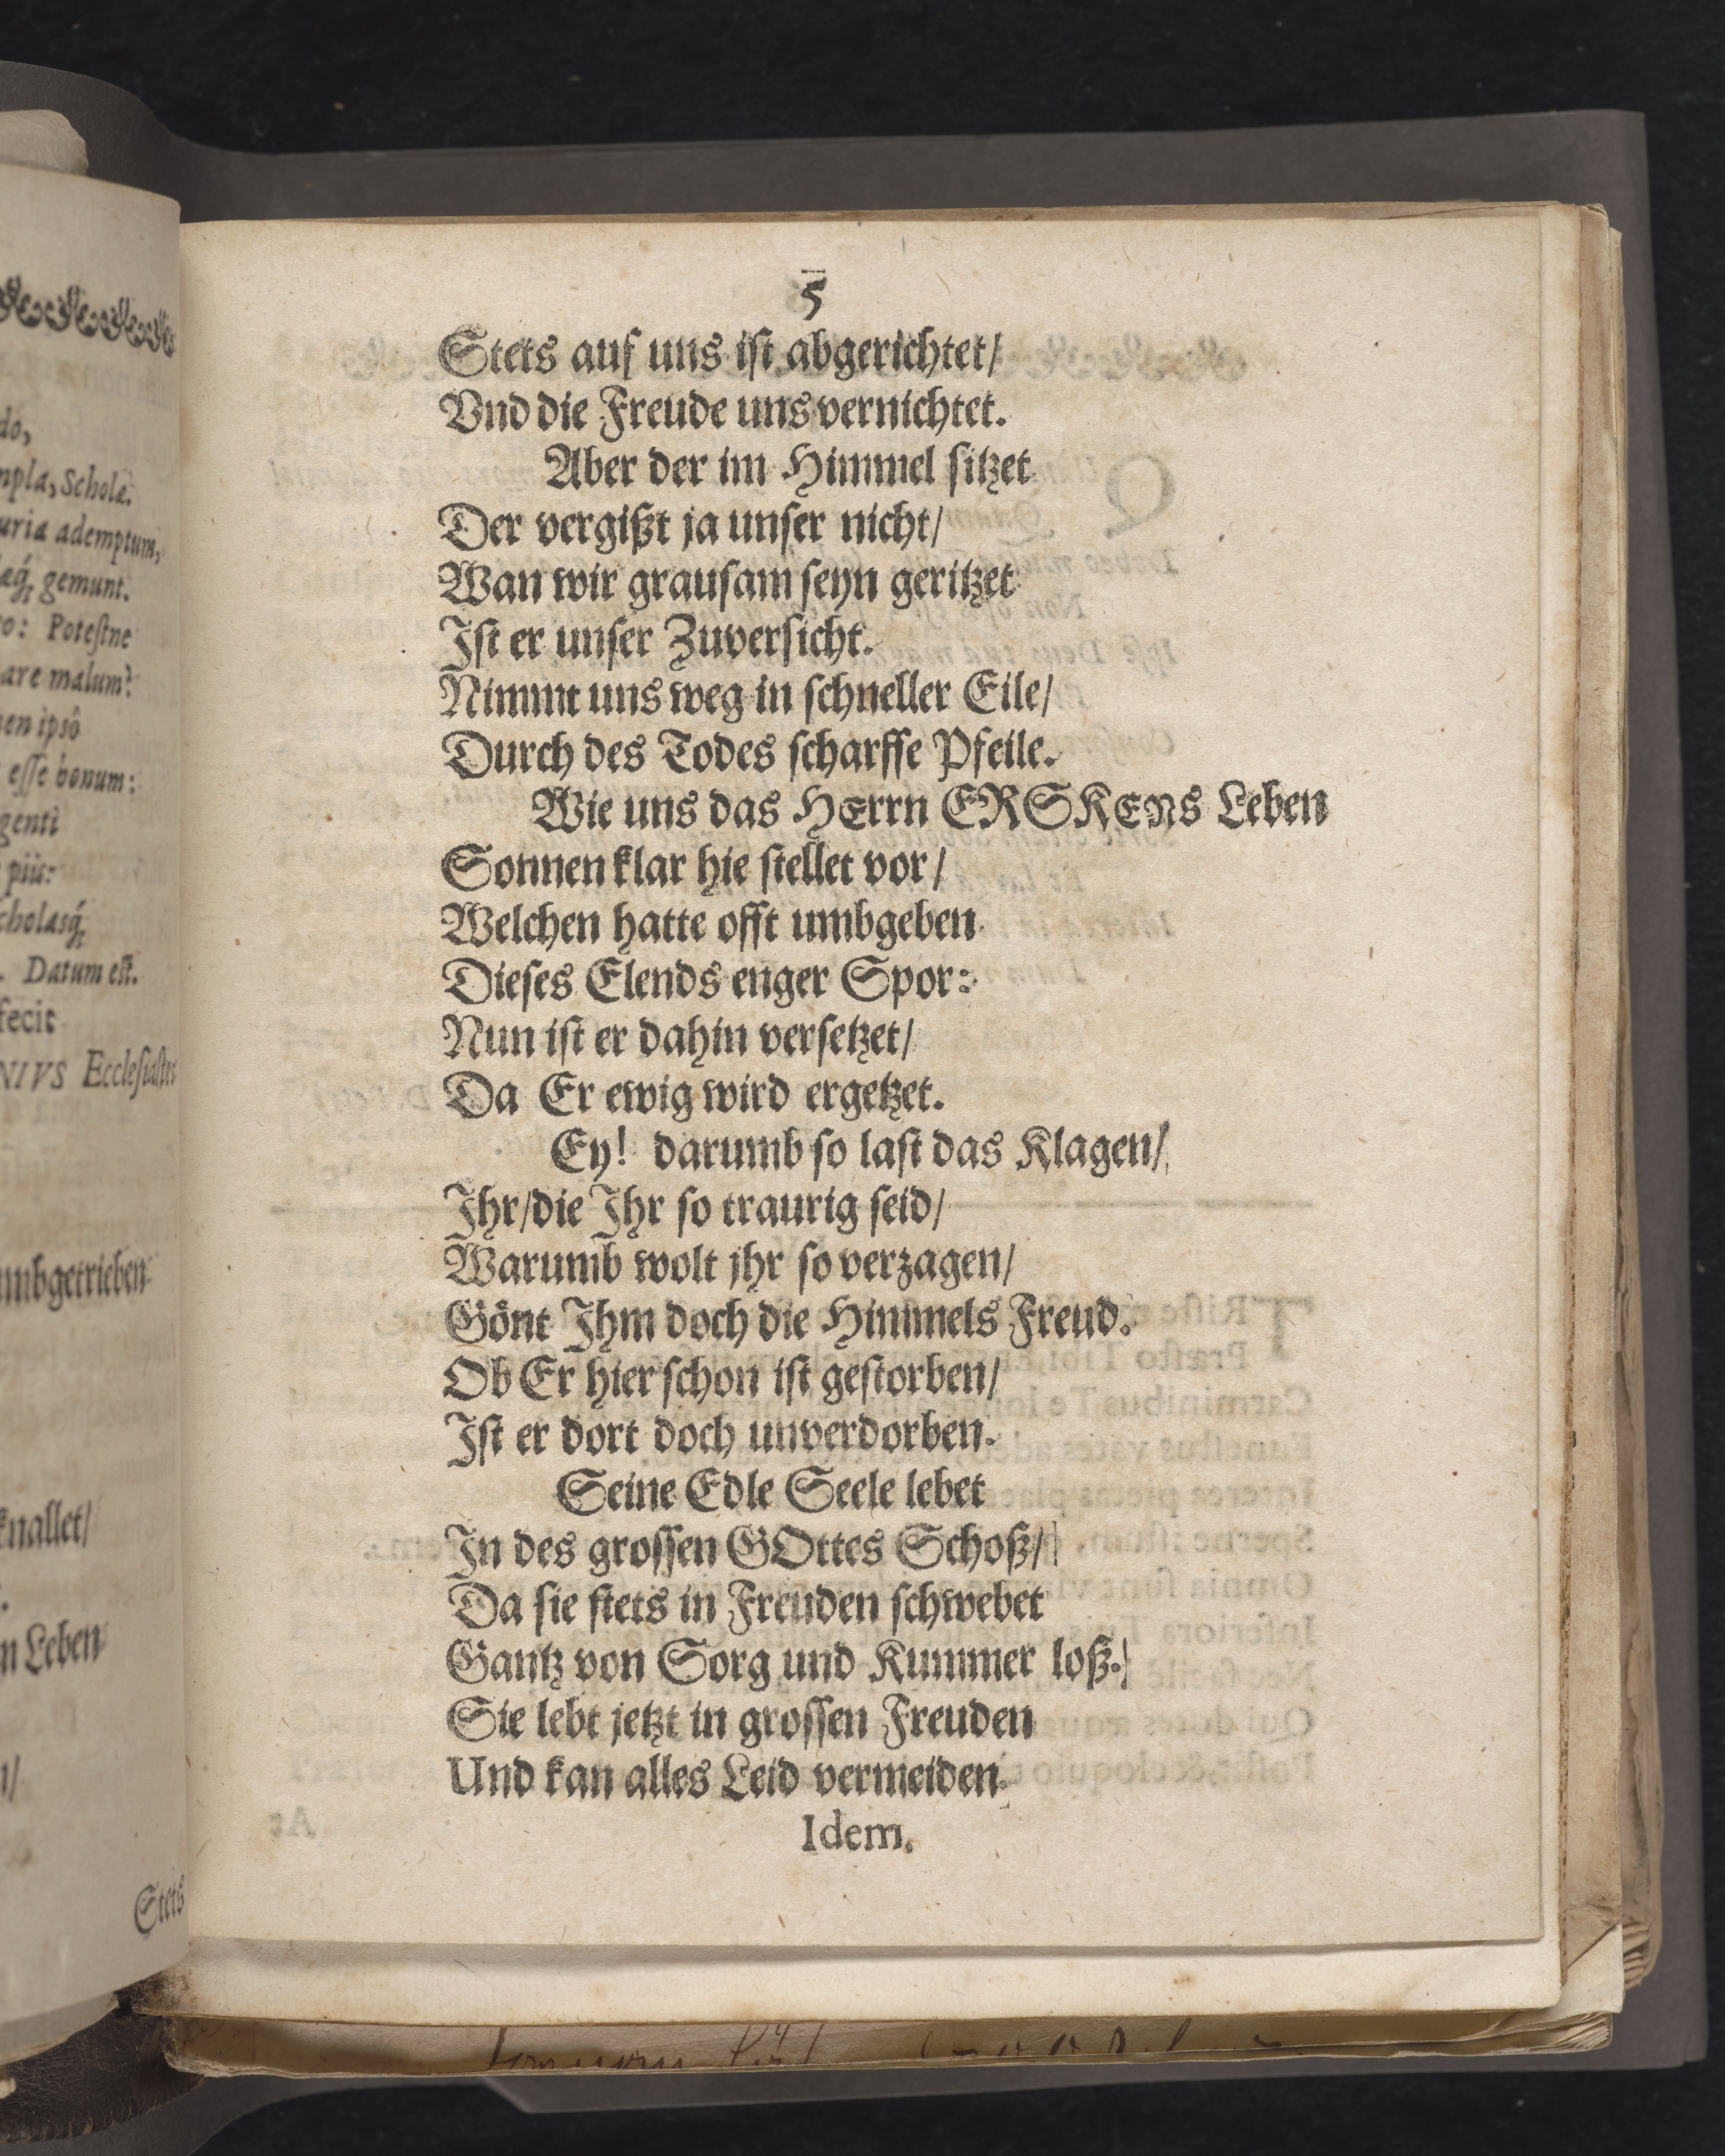 do,
mpla, Scholæ.
uria ademptum,
æq́; gemunt.
ro: Potestne
are malum?
en ipsô
esse bonum:
genti
piû:
cholasq́;
. Datum est.
fecit
NIVS Ecclesiastes
umbgetrieben
knallet/
n Leben
n/
Stets
5
Stets auf uns ist abgerichtet/
Vnd die Freude uns vernichtet.
Aber der im Himmel sitzet
Der vergißt ja unser nicht/
Wan wir grausam seyn geritzet
Ist er unser Zuversicht.
Nimmt uns weg in schneller Eile/
Durch des Todes scharffe Pfeile.
Wie uns das HErrn ERSKENs Leben
Sonnen klar hie stellet vor/
Welchen hatte offt umbgeben
Dieses Elends enger Spor:
Nun ist er dahin versetzet/
Da Er ewig wird ergetzet.
Ey! darumb so last das Klagen/
Ihr/die Ihr so traurig seid/
Warumb wolt jhr so verzagen/
Gönt Ihm doch die Himmels Freud.
Ob Er hier schon ist gestorben/
Ist er dort doch unverdorben.
Seine Edle Seele lebet
In des grossen GOttes Schoß/
Da sie stets in Freuden schwebet
Gantz von Sorg und Kummer loß.
Sie lebt jetzt in grossen Freuden
Und kan alles Leid vermeiden.
Idem.